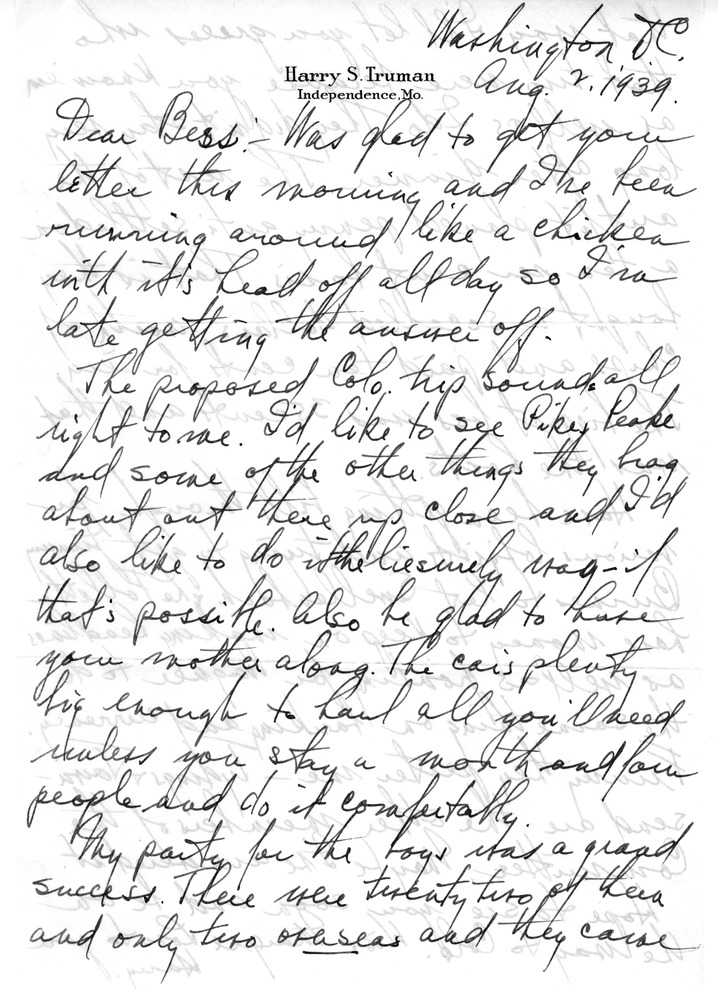 Washington, D.C.
Harry S. Truman
Independence, Mo.
Aug. 2, 1939.
Dear Bess:- Was glad to get your
letter this morning and I've been
running around like a chicken
with it's head off all day so I'm
late getting the answer off.
The proposed Colo. trip sounds all
right to me. I'd like to see Pikes Peake
and some of the other things they brag
about out there up close and I'd
also like to do it the liesurely way - if
that's possible. Also be glad to have
your mother along. The car is plenty
big enough to haul all you'll need
unless you stay a month and four
people and do it comfortably.
My party for the boys was a grand
success. There were twenty two of them
and only two overseas and they came